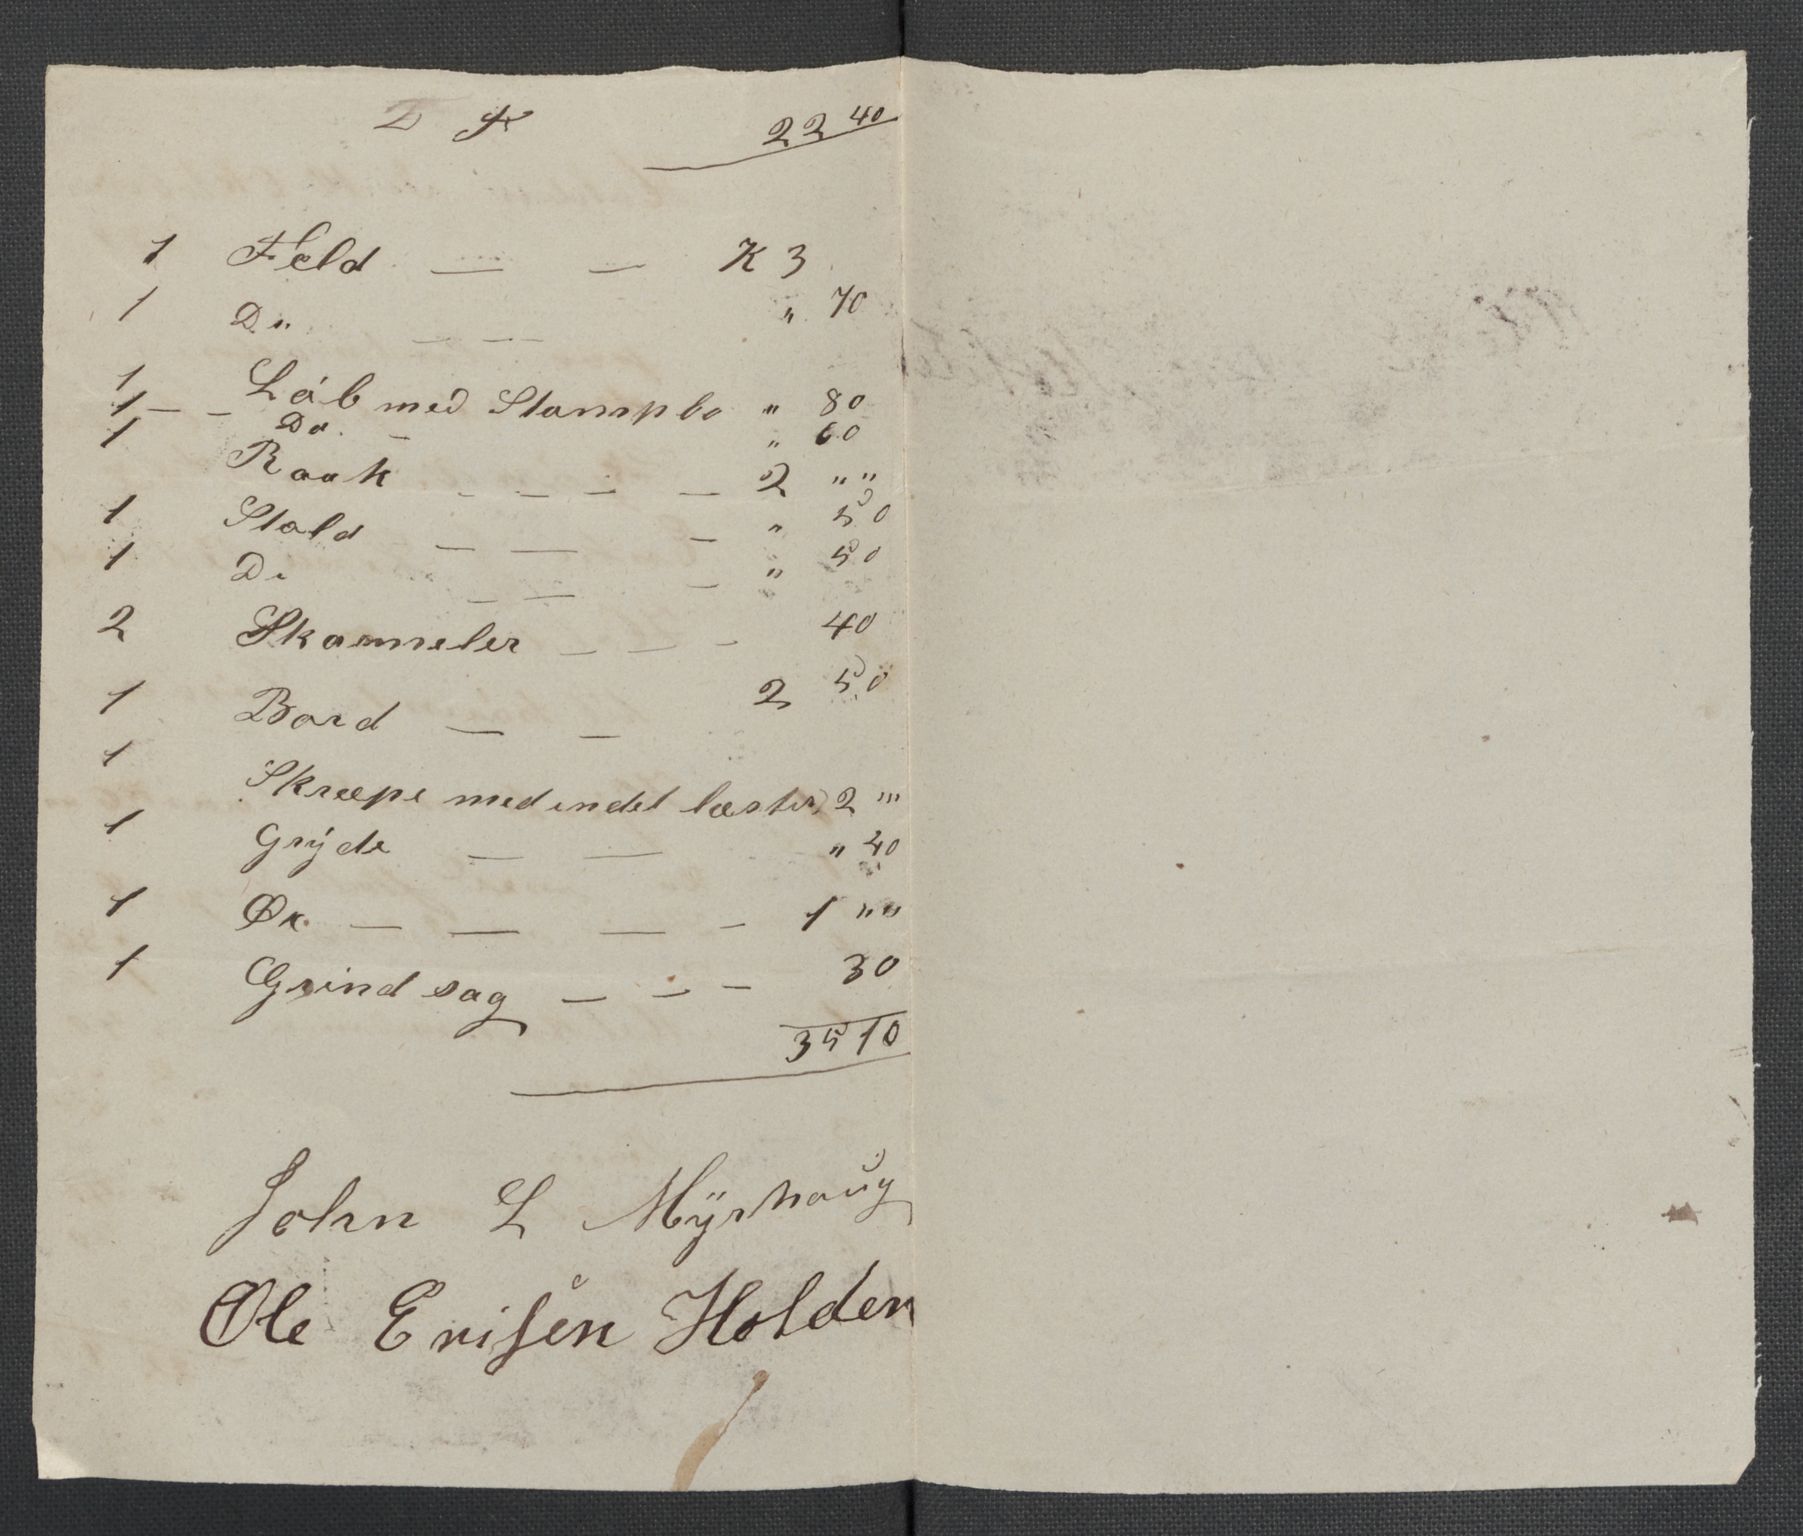 22 40
1 Feld — — K 3
1 Do — — — " 70
1 Láb med Stampbo " 80
1 — — Do. — " 60
1 Raak — — — — 2 " "
1 Stold — — — " 50
1 Do — — — " 50
2 Skammeler — — — 40
1 Bord — — 2 50
1 Skræpe med indet læster 2 " "
1 Grÿde — — " 40
1 Øx — — — — 1 " "
1 Grind sag — — — 30
35 10
John L Mÿrhaŭg
Ole Erisen Holden